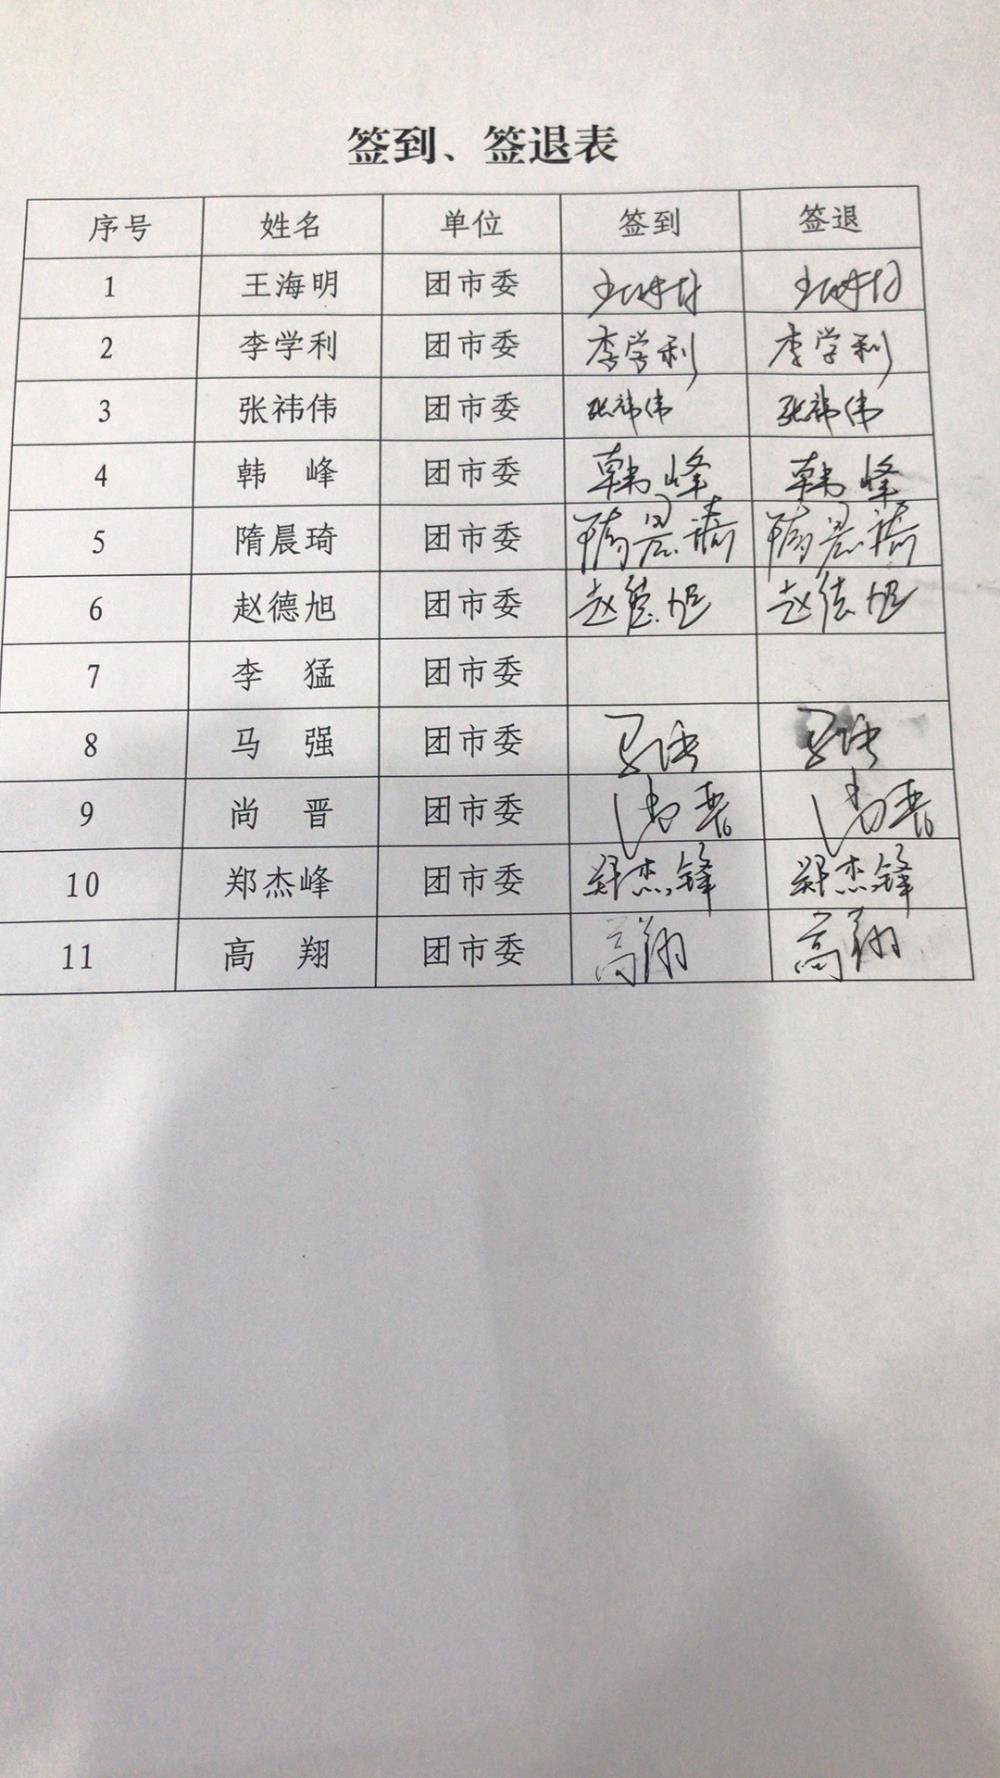 签到、签退表
序号 姓名 单位 签到 签退
1 王海明 团市委 王海明 王海明
2 李学利 团市委 李学利 李学利
3 张祎伟 团市委 张祎伟 张祎伟
4 韩 峰 团市委 韩峰 韩峰
5 隋晨琦 团市委 隋晨琦 隋晨琦
6 赵德旭 团市委 赵德旭 赵德旭
7 李 猛 团市委
8 马 强 团市委 马强 马强
9 尚 晋 团市委 尚晋 尚晋
10 郑杰峰 团市委 郑杰锋 郑杰锋
11 高 翔 团市委 高翔 高翔